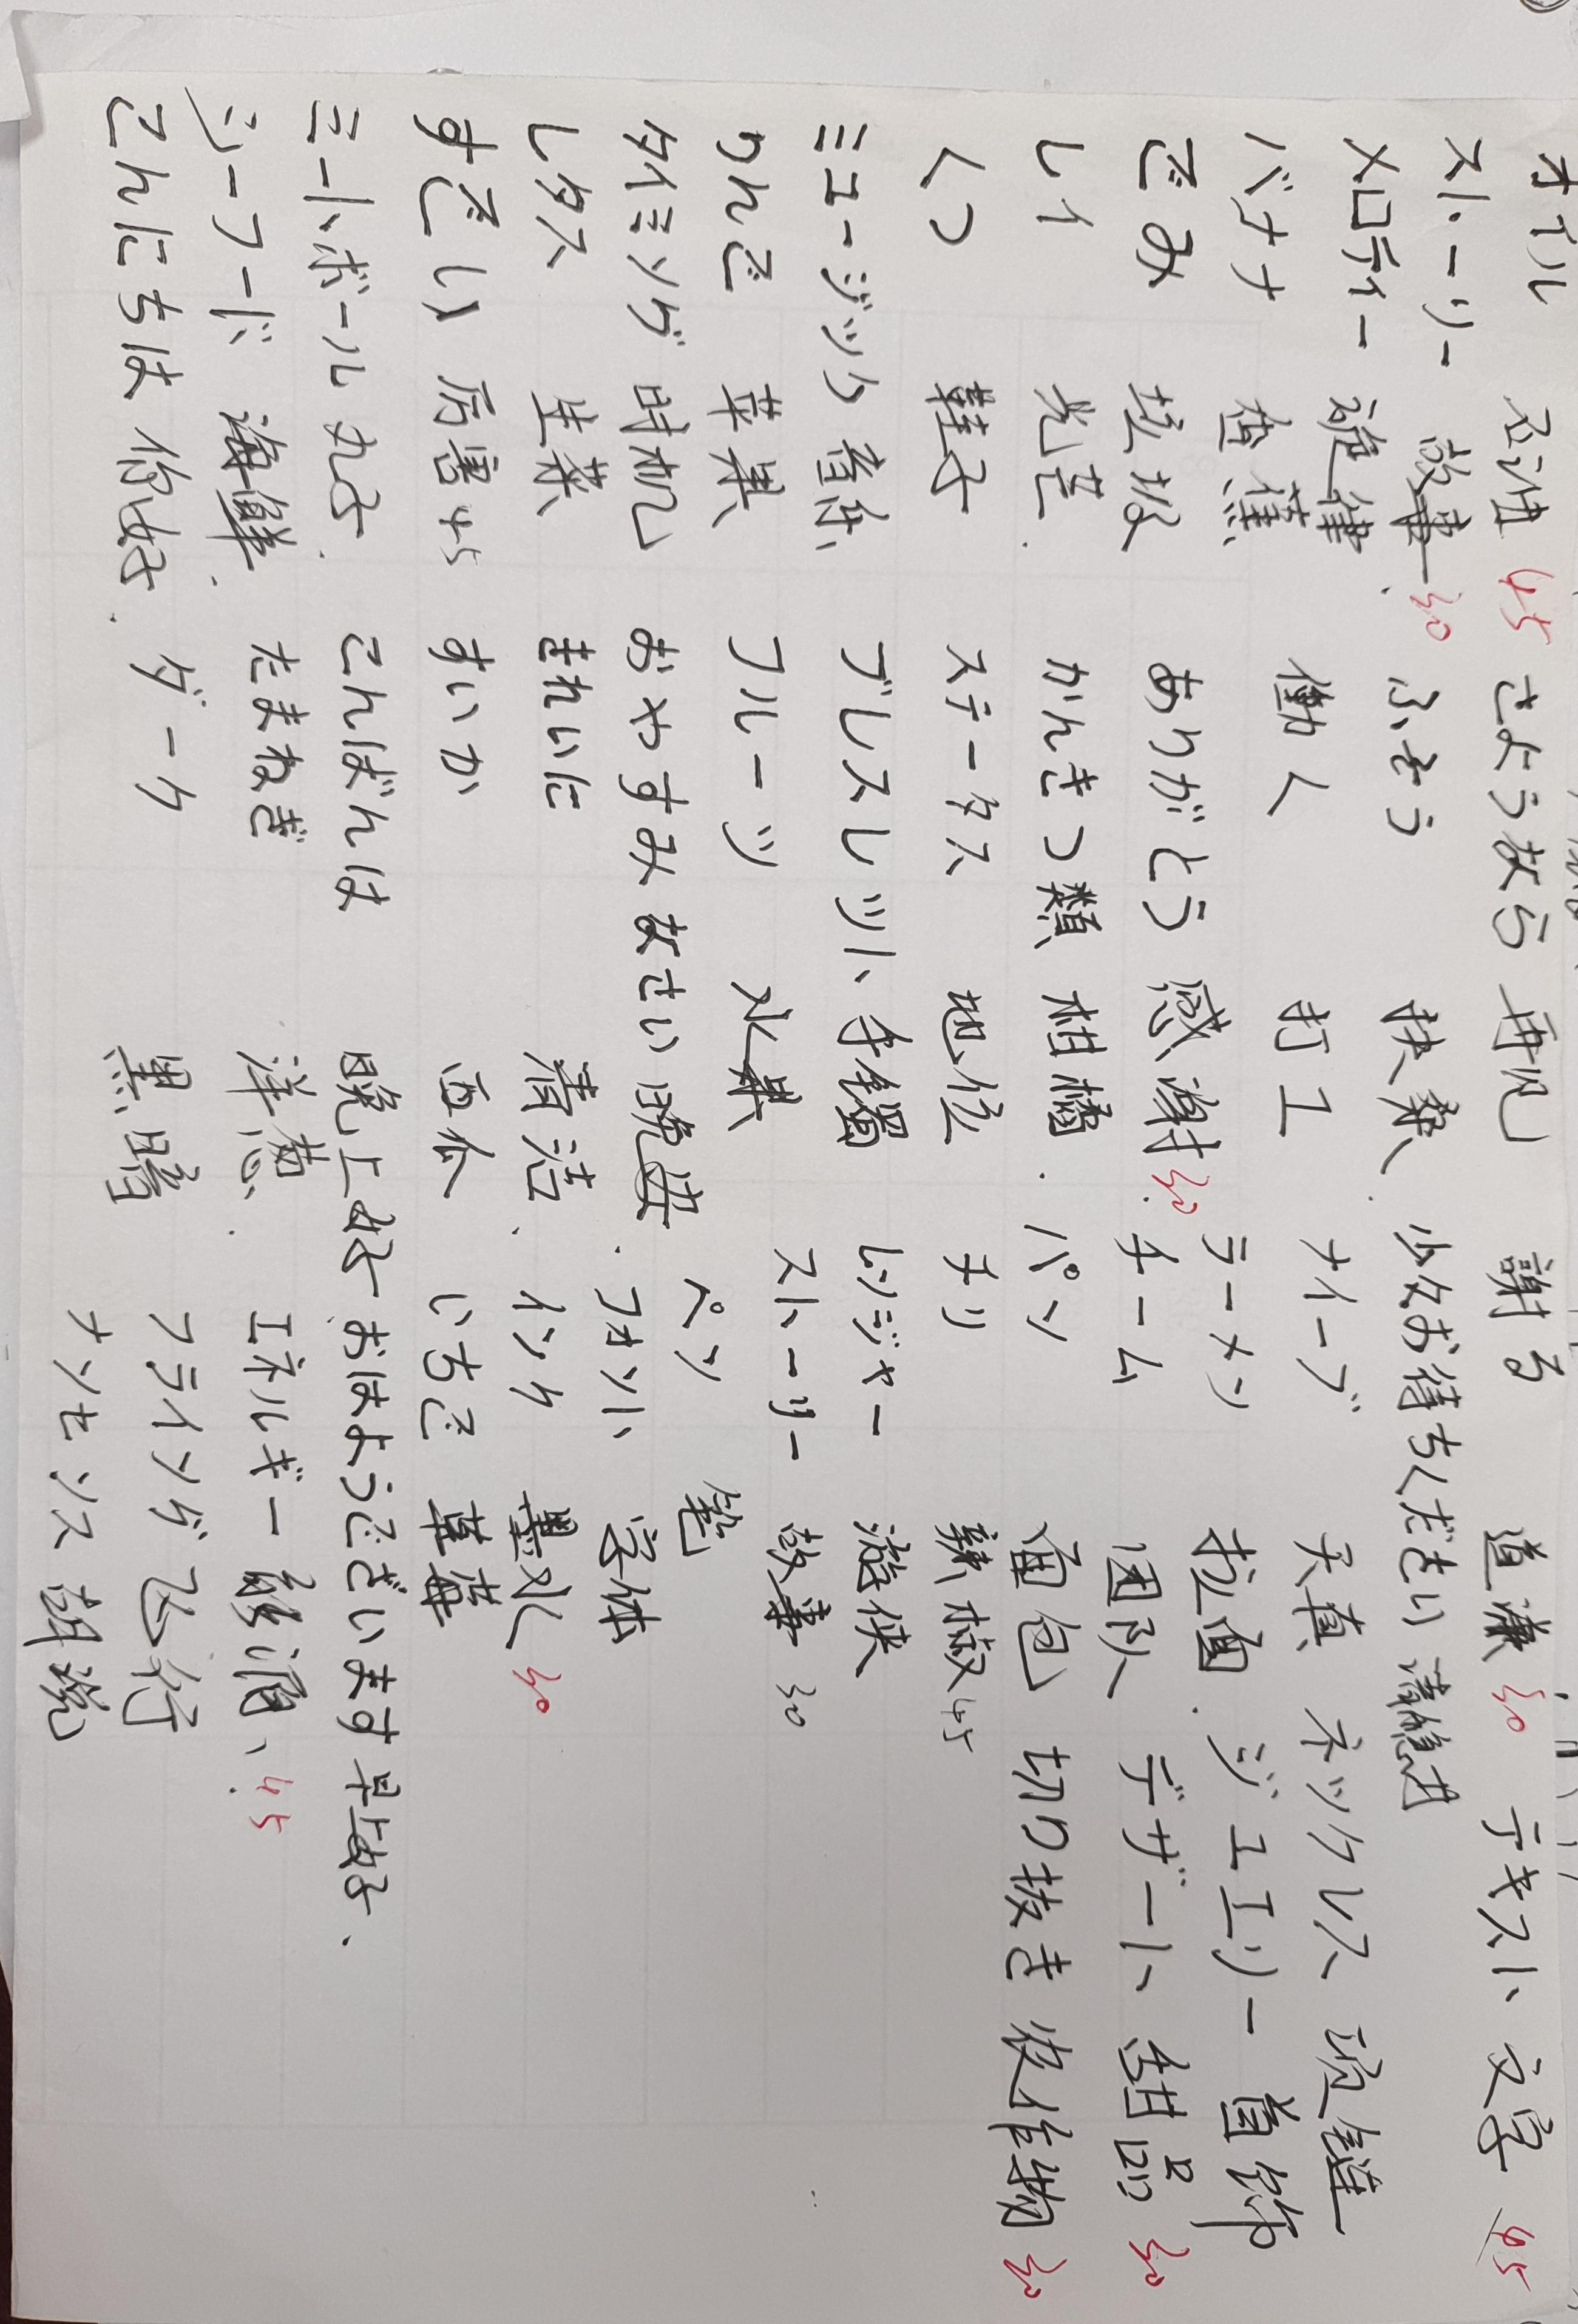 オイル 45 さようなら 再见 謝る 道歉 30 テキスト 文字 45
ストーリー 故事 30 ふそう 扶桑 少々お待ちください
メロディー 旋律 働く 打工 ナイーブ 天真 ネックレス 项鏈
バナナ 香蕉 ありがとう 感謝 30 ラーメン 拉面 ジュエリー 首饰
ごみ 垃圾 かんきつ類 柑橘 チーム 团队 デザート 甜品 30
レイ 光芒 ステータス 地位 パン 面包 切り抜き 後作物 30
くつ 鞋子 ブレスレット 手镯 チリ 辣椒 45
ミュージック 音乐 フルーツ 水果 レンジャー 游侠
りんご 苹果 おやすみなさい 晚安 ストーリー 故事 30
タイミング 时机 きれいに 清洁 ペン 笔
レタス 生菜 すいか 西瓜 フォント 字体
すごい 厉害 45 こんばんは 晚上好 インク 墨水 30
ミートボール 丸子 たまねぎ 洋葱 いちご 草莓
シーフード 海鲜 ダーク 黑暗 おはようございます 早上好
こんにちは 你好 エネルギー 能源 45
フライング 飞行
ナンセンス 胡说